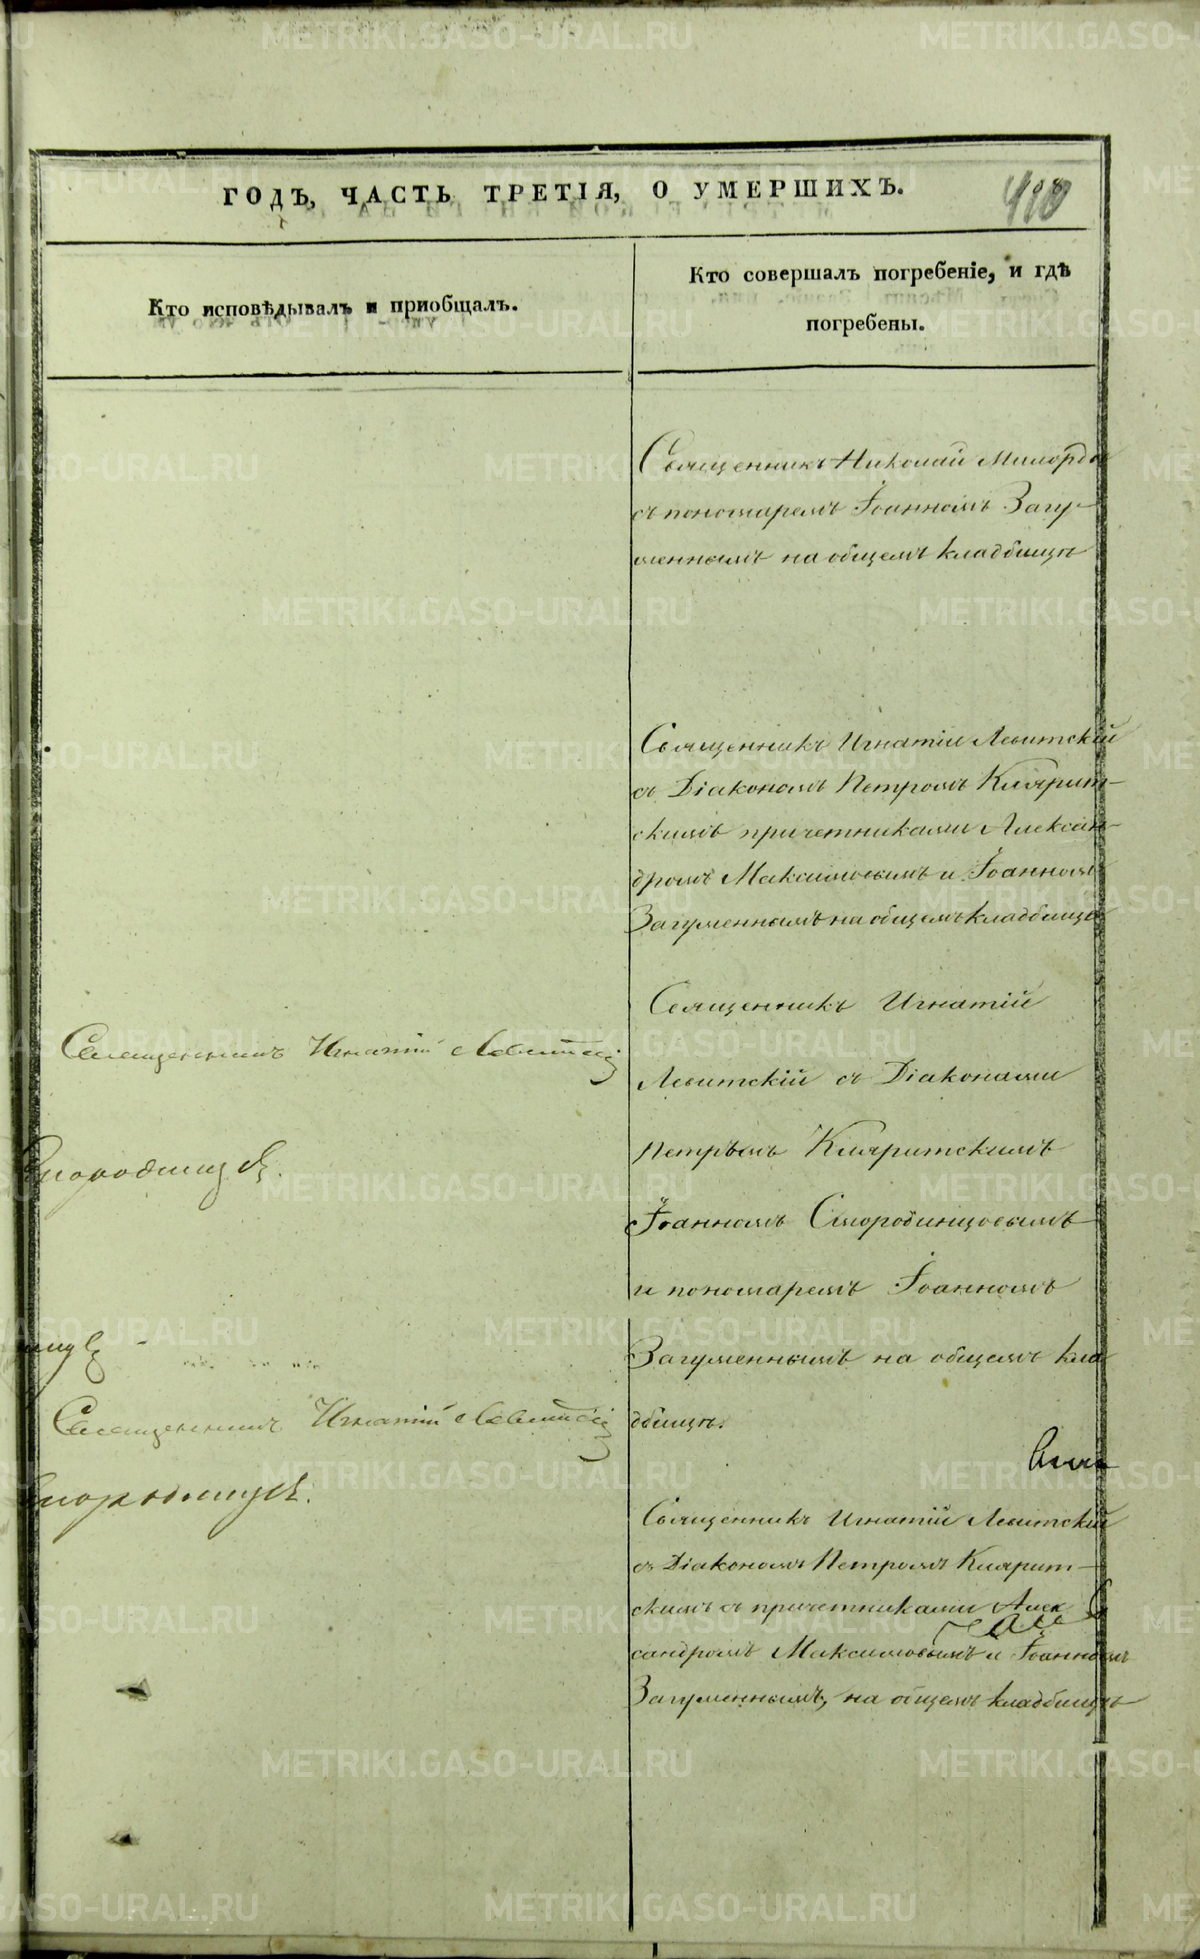 ГОДЪ, ЧАСТЬ ТРЕТІЯ, О УМЕРШИХЪ.
410
Кто исповѣдывалъ и приобщалъ.
Кто совершалъ погребеніе, и гдѣ
погребены.
Священникъ Николай
съ пономаремъ Іоанномъ Загу-
меннымъ на общемъ кладбищѣ
Священникъ Игнатій Левитскій
съ Діакономъ Петромъ Клярит-
скимъ причетниками Алексан-
дромъ Максимовымъ и Іоанномъ
Загуменнымъ на общемъ кладбищѣ
Священникъ Игнатій
Левитскій съ Діаконами
Петромъ Кляритскимъ
Іоанномъ Смородинцовымъ
и пономаремъ Іоанномъ
Загуменнымъ на общемъ кла
дбищѣ.
Священникъ Игнатій Левитскій
съ Діакономъ Петромъ Клярит-
скимъ съ причетниками Алек
сандромъ Максимовымъ и Іоанномъ
Загуменнымъ, на общемъ кладбищѣ
Священникъ Игнатій Левитскій
Священникъ Игнатій Левитскій
METRIKI.GASO-URAL.RU